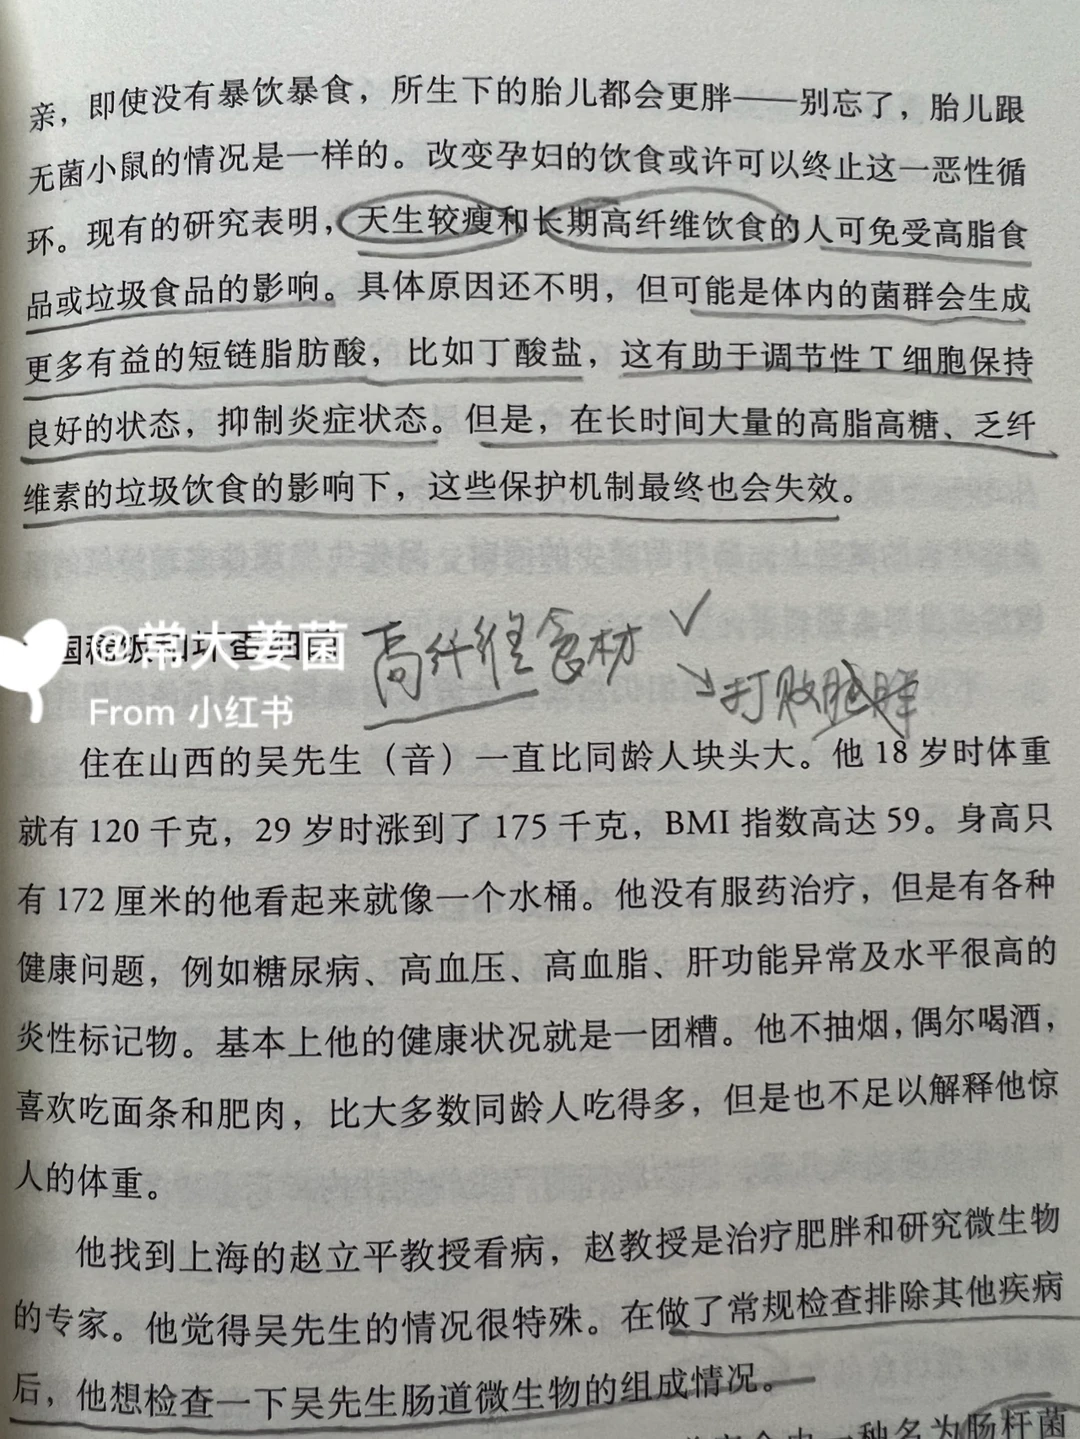 亲，即使没有暴饮暴食，所生下的胎儿都会更胖——别忘了，胎儿跟
无菌小鼠的情况是一样的。改变孕妇的饮食或许可以终止这一恶性循
环。现有的研究表明，天生较瘦和长期高纤维饮食的人可免受高脂食
品或垃圾食品的影响。具体原因还不明，但可能是体内的菌群会生成
更多有益的短链脂肪酸，比如丁酸盐，这有助于调节性 T 细胞保持
良好的状态，抑制炎症状态。但是，在长时间大量的高脂高糖、乏纤
维素的垃圾饮食的影响下，这些保护机制最终也会失效。
@常大姜菌
From 小红书
高纤维食材
打败肥胖
住在山西的吴先生（音）一直比同龄人块头大。他 18 岁时体重
就有 120 千克，29 岁时涨到了 175 千克，BMI 指数高达 59。身高只
有 172 厘米的他看起来就像一个水桶。他没有服药治疗，但是有各种
健康问题，例如糖尿病、高血压、高血脂、肝功能异常及水平很高的
炎性标记物。基本上他的健康状况就是一团糟。他不抽烟，偶尔喝酒，
喜欢吃面条和肥肉，比大多数同龄人吃得多，但是也不足以解释他惊
人的体重。
他找到上海的赵立平教授看病，赵教授是治疗肥胖和研究微生物
的专家。他觉得吴先生的情况很特殊。在做了常规检查排除其他疾病
后，他想检查一下吴先生肠道微生物的组成情况。
一种名为肠杆菌